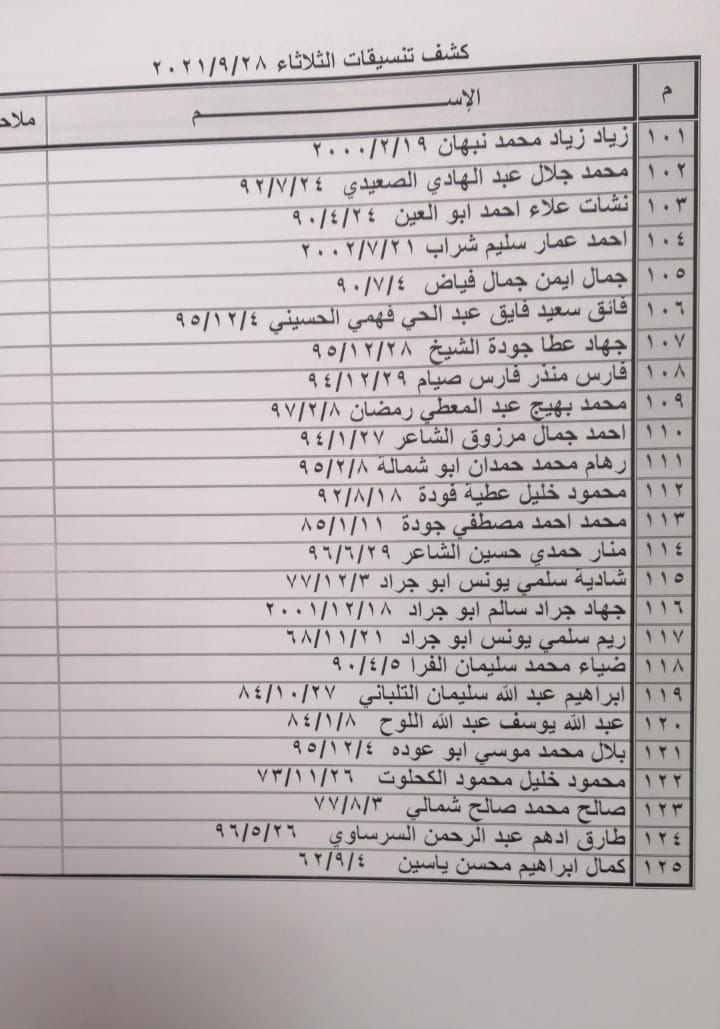 كشف تنسيقات الثلاثاء ٢٠٢١/٩/٢٨
م الإســـــــــم ملاحـ
١٠١ زياد زياد محمد نبهان ٢٠٠٠/٢/١٩
١٠٢ محمد جلال عبد الهادي الصعيدي ٩٢/٧/٢٤
١٠٣ نشات علاء احمد ابو العين ٩٠/٤/٢٤
١٠٤ احمد عمار سليم شراب ٢٠٠٢/٧/٢١
١٠٥ جمال ايمن جمال فياض ٩٠/٧/٤
١٠٦ فائق سعيد فايق عبد الحي فهمي الحسيني ٩٥/١٢/٤
١٠٧ جهاد عطا جودة الشيخ ٩٥/١٢/٢٨
١٠٨ فارس منذر فارس صيام ٩٤/١٢/٢٩
١٠٩ محمد بهيج عبد المعطي رمضان ٩٧/٢/٨
١١٠ احمد جمال مرزوق الشاعر ٩٤/١/٢٧
١١١ رهام محمد حمدان ابو شمالة ٩٥/٢/٨
١١٢ محمود خليل عطية فودة ٩٢/٨/١٨
١١٣ محمد احمد مصطفي جودة ٨٥/١/١١
١١٤ منار حمدي حسين الشاعر ٩٦/٦/٢٩
١١٥ شادية سلمي يونس ابو جراد ٧٧/١٢/٣
١١٦ جهاد جراد سالم ابو جراد ٢٠٠١/١٢/١٨
١١٧ ريم سلمي يونس ابو جراد ٦٨/١١/٢١
١١٨ ضياء محمد سليمان الفرا ٩٠/٤/٥
١١٩ ابراهيم عبد الله سليمان التلباني ٨٤/١٠/٢٧
١٢٠ عبد الله يوسف عبد الله اللوح ٨٤/١/٨
١٢١ بلال محمد موسي ابو عوده ٩٥/١٢/٤
١٢٢ محمود خليل محمود الكحلوت ٧٣/١١/٢٦
١٢٣ صالح محمد صالح شمالي ٧٧/٨/٣
١٢٤ طارق ادهم عبد الرحمن السرساوي ٩٦/٥/٢٦
١٢٥ كمال ابراهيم محسن ياسين ٦٢/٩/٤